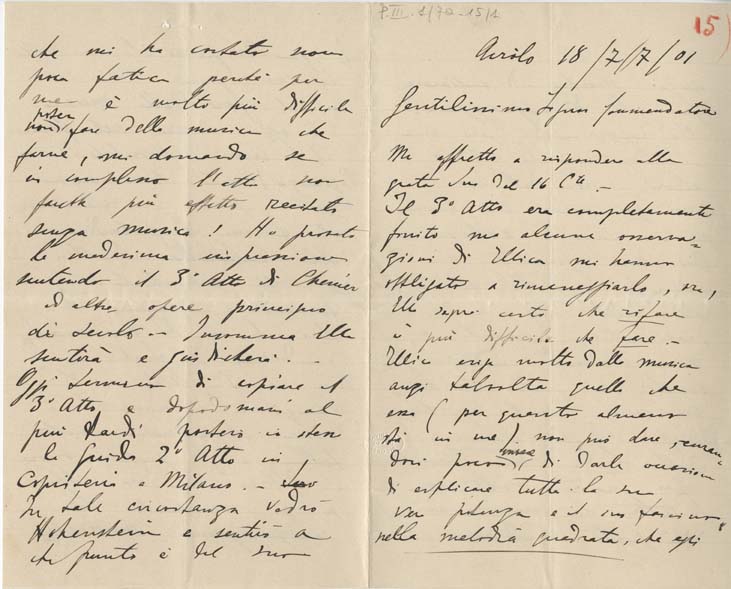 P. III. 1/72-15/1
15)
Airolo 18/7/7/01
Gentilissimo Signor Commendatore
Mi affretto a rispondere alla
grata Sua del 16 C.te –
Il 3° Atto era completamente
finito ma alcune osserva-
zioni di Illica mi hanno
obbligato a rimaneggiarlo, ora,
Ella saprà certo che rifare
è più difficile che fare. –
Illica esige molto dalla musica
anzi talvolta quello che
essa (per quanto almeno
sta in me) non può dare, curan-
dosi poco invece di darle occasione
di esplicare tutta la sua
vera potenza e il suo fascino
nella melodia quadrata, che egli
che mi ha costato non
poca fatica perché per
me è molto più difficile
poter non fare della musica che
farne, mi domando se
in complesso l'atto non
farebbe più effetto recitato
senza musica! Ho provato
la medesima impressione
sentendo il 3° Atto di Chenier
ed altre opere principio
di secolo – Insomma Ella
sentirà e giudicherà. –
Oggi termino di copiare il
3° Atto e dopodomani al
più tardi porterò io stesso
la Guida 2° Atto in
Copisteria a Milano. –
In tale circostanza vedrò
Hohenstein e sentirò a
che punto è del suo